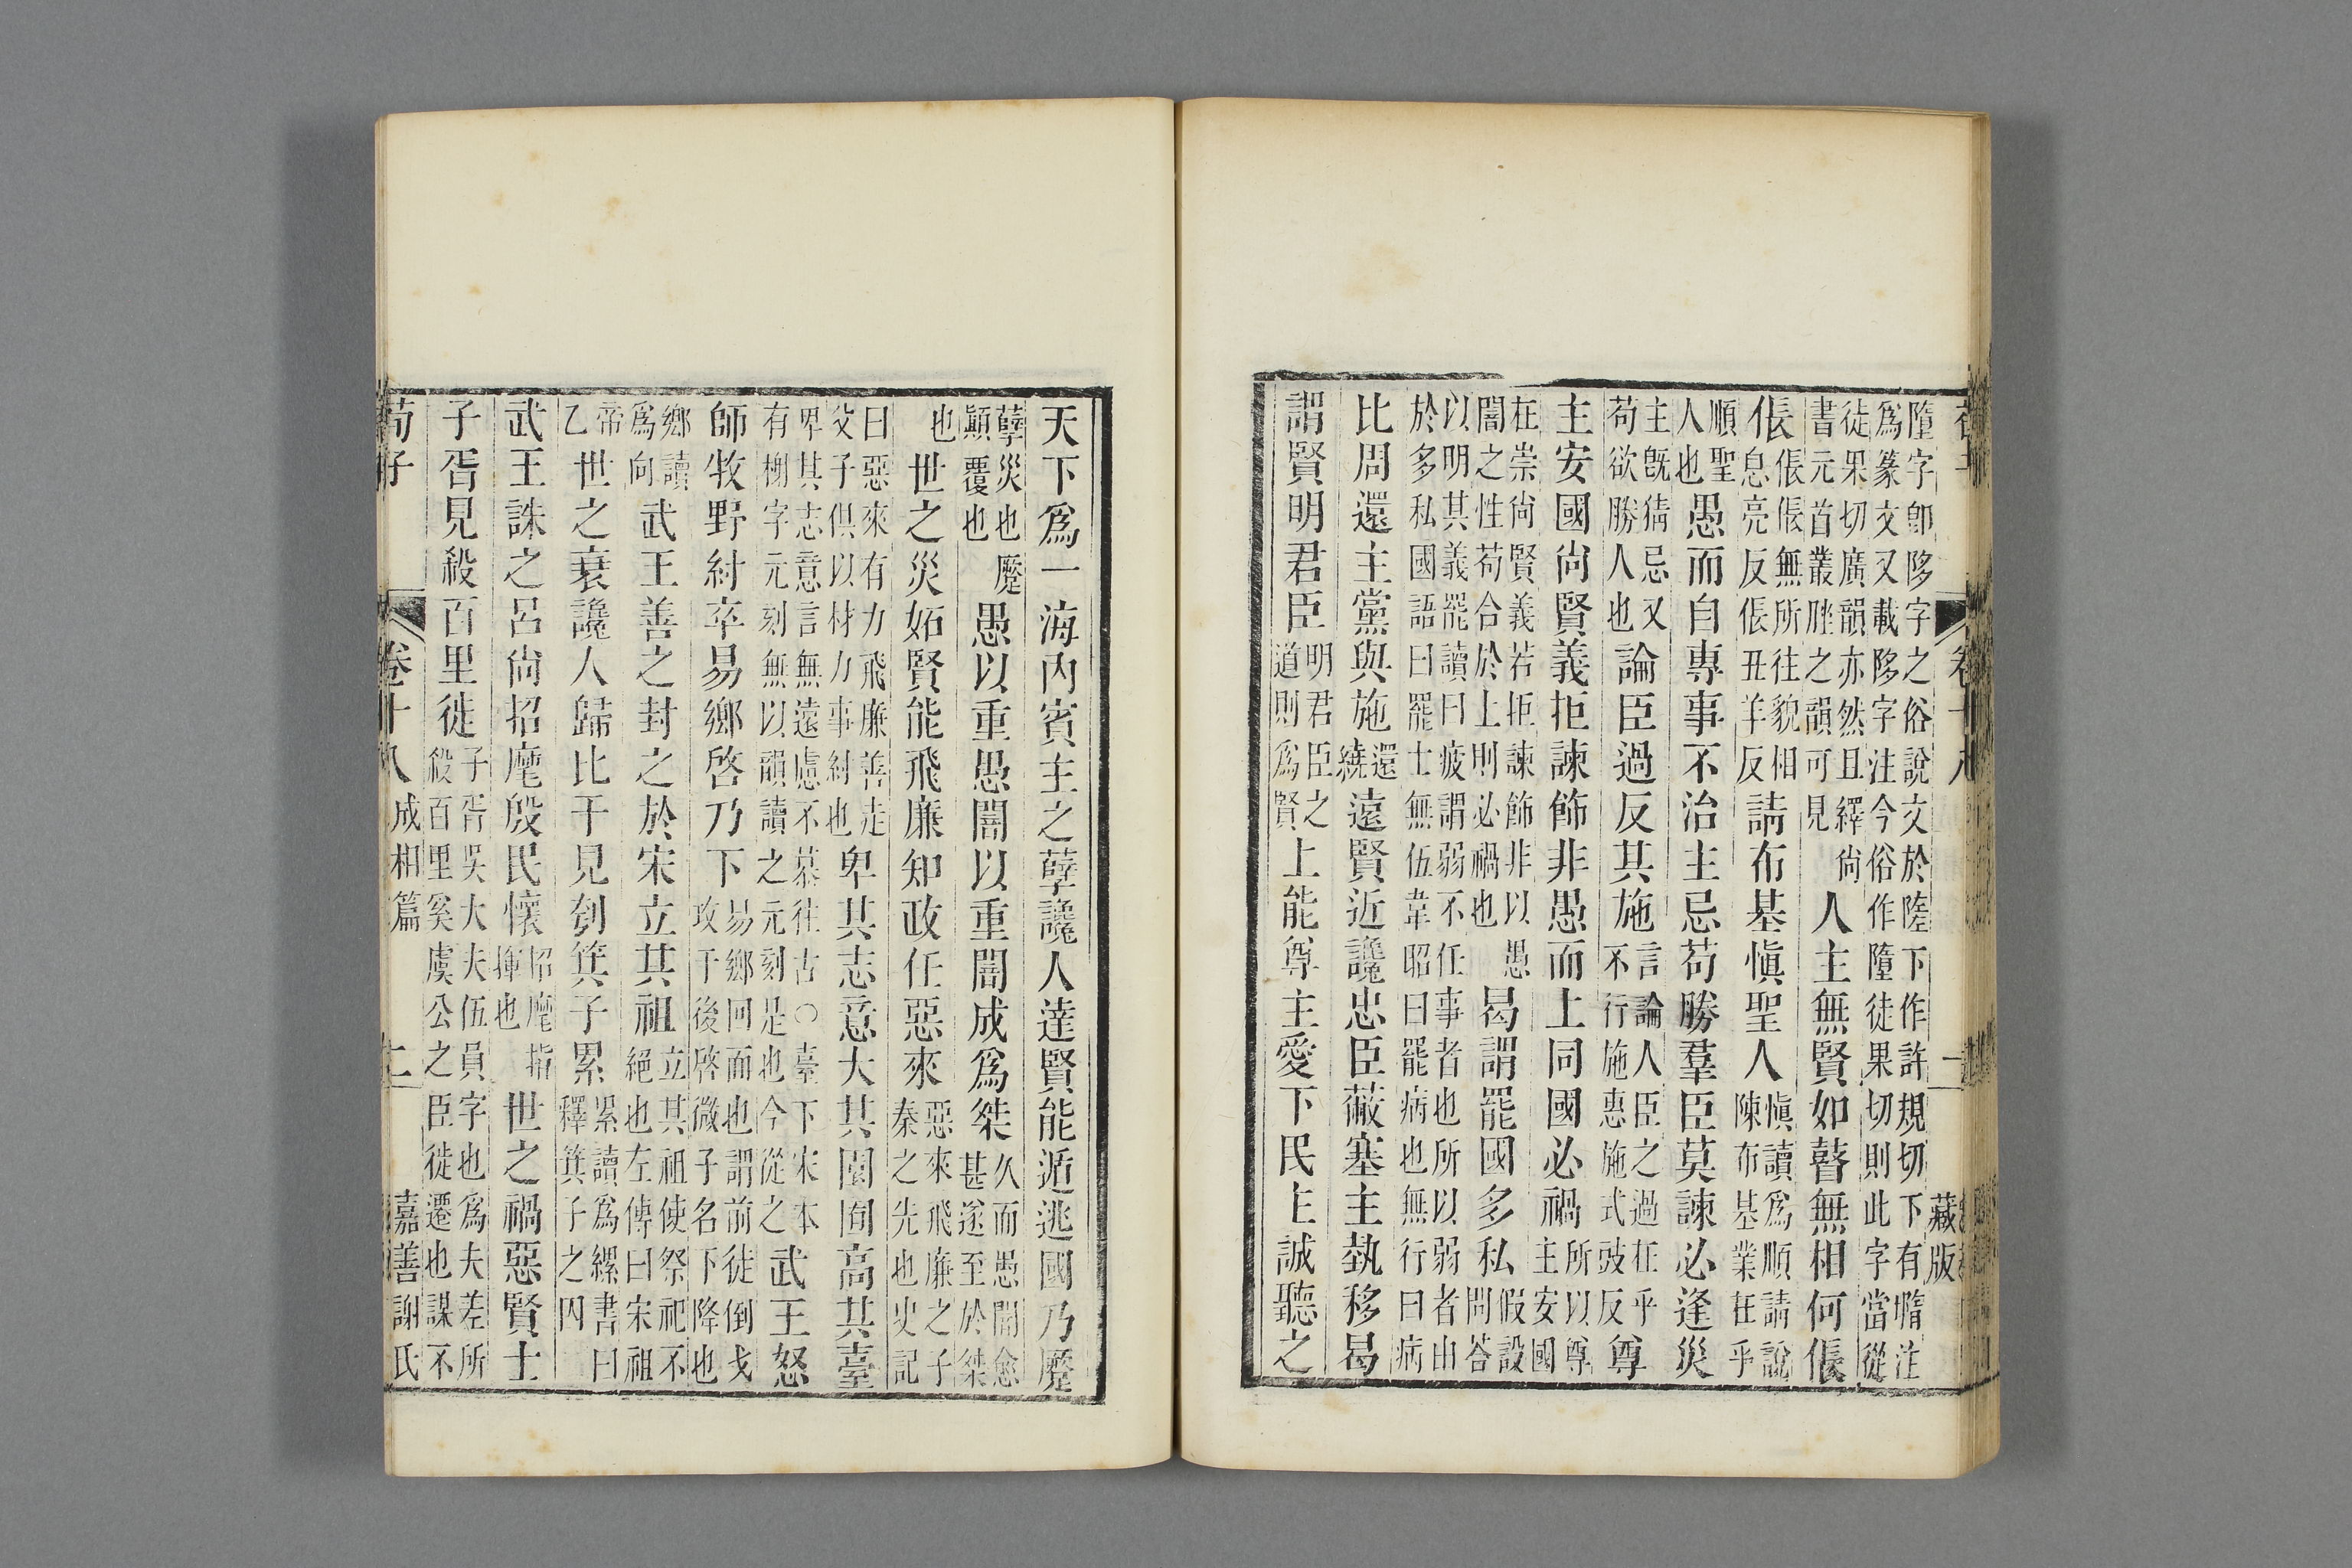 隋字卽陊字之俗說文於隓下作許規切下有惰注
爲篆文又載陊字注今俗作隋徒果切則此字當從
徒果切廣韻亦然且繹尙書元首叢脞之韻可見人主無賢如瞽無相何倀
倀倀倀無所往貌相息亮反倀丑羊反請布基愼聖人愼讀爲順請說陳布基業在乎
順聖人也愚而自專事不治主忌苟勝羣臣莫諫必逢災
主旣猜忌又苟欲勝人也論臣過反其施言論人臣之過在乎不行施惠施式豉反尊
主安國尙賢義拒諫飾非愚而上同國必禍所以尊主安國
在崇尙賢義若拒諫飾非以愚闇之性苟合於上則必禍也曷謂罷國多私假設問荅
以明其義罷讀曰疲謂弱不任事者也所以弱者由於多私國語曰罷士無伍韋昭曰罷病也無行曰病
比周還主黨與施還繞遠賢近讒忠臣蔽塞主埶移曷
謂賢明君臣明君臣之道則爲賢上能尊主愛下民主誠聽之
天下爲一海內賓主之孽讒人達賢能遁逃國乃蹷
孽災也蹷顚覆也愚以重愚闇以重闇成爲桀久而愚闇愈甚遂至於桀
也世之災妬賢能飛廉知政任惡來惡來飛廉之子秦之先也史記
曰惡來有力飛廉善走父子俱以材力事紂也卑其志意大其園囿高其臺
卑其志意言無遠慮不慕往古○臺下宋本有榭字元刻無以韻讀之元刻是也今從之武王怒
師牧野紂卒易鄉啓乃下易鄉回而也謂前徒倒戈攻于後啓微子名下降也
鄉讀爲向武王善之封之於宋立其祖立其祖使祭祀不絕也左傳曰宋祖
帝乙世之衰讒人歸比干見刳箕子累累讀爲縲書曰釋箕子之囚
武王誅之呂尙招麾殷民懷招麾指揮也世之禍惡賢士
子胥見殺百里徙子胥吳大夫伍員字也爲夫差所殺百里奚虞公之臣徙遷也謀不
荀子 卷十八 成相篇 二 嘉善謝氏
藏版